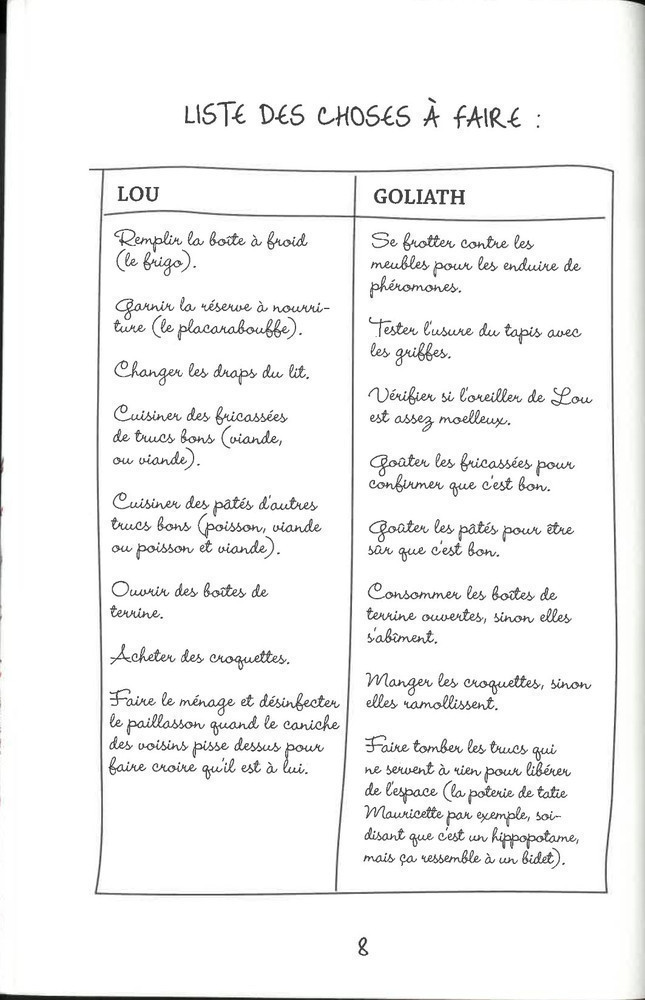 LISTE DES CHOSES À FAIRE :
LOU
Remplir la boîte à froid
(le frigo).
Garnir la réserve à nourri-
ture (le placarabouffe).
Changer les draps du lit.
Cuisiner des fricassées
de trucs bons (viande,
ou viande).
Cuisiner des pâtés d'autres
trucs bons (poisson, viande
ou poisson et viande).
Ouvrir des boîtes de
terrine.
Acheter des croquettes.
Faire le ménage et désinfecter
le paillasson quand le caniche
des voisins pisse dessus pour
faire croire qu'il est à lui.
GOLIATH
Se frotter contre les
meubles pour les enduire de
phéromones.
Tester l'usure du tapis avec
les griffes.
Vérifier si l'oreiller de Lou
est assez moelleux.
Goûter les fricassées pour
confirmer que c'est bon.
Goûter les pâtés pour être
sûr que c'est bon.
Consommer les boîtes de
terrine ouvertes, sinon elles
s'abîment.
Manger les croquettes, sinon
elles ramollissent.
Faire tomber les trucs qui
ne servent à rien pour libérer
de l'espace (la poterie de tatie
Mauricette par exemple, soi-
disant que c'est un hippopotame,
mais ça ressemble à un bidet).
8